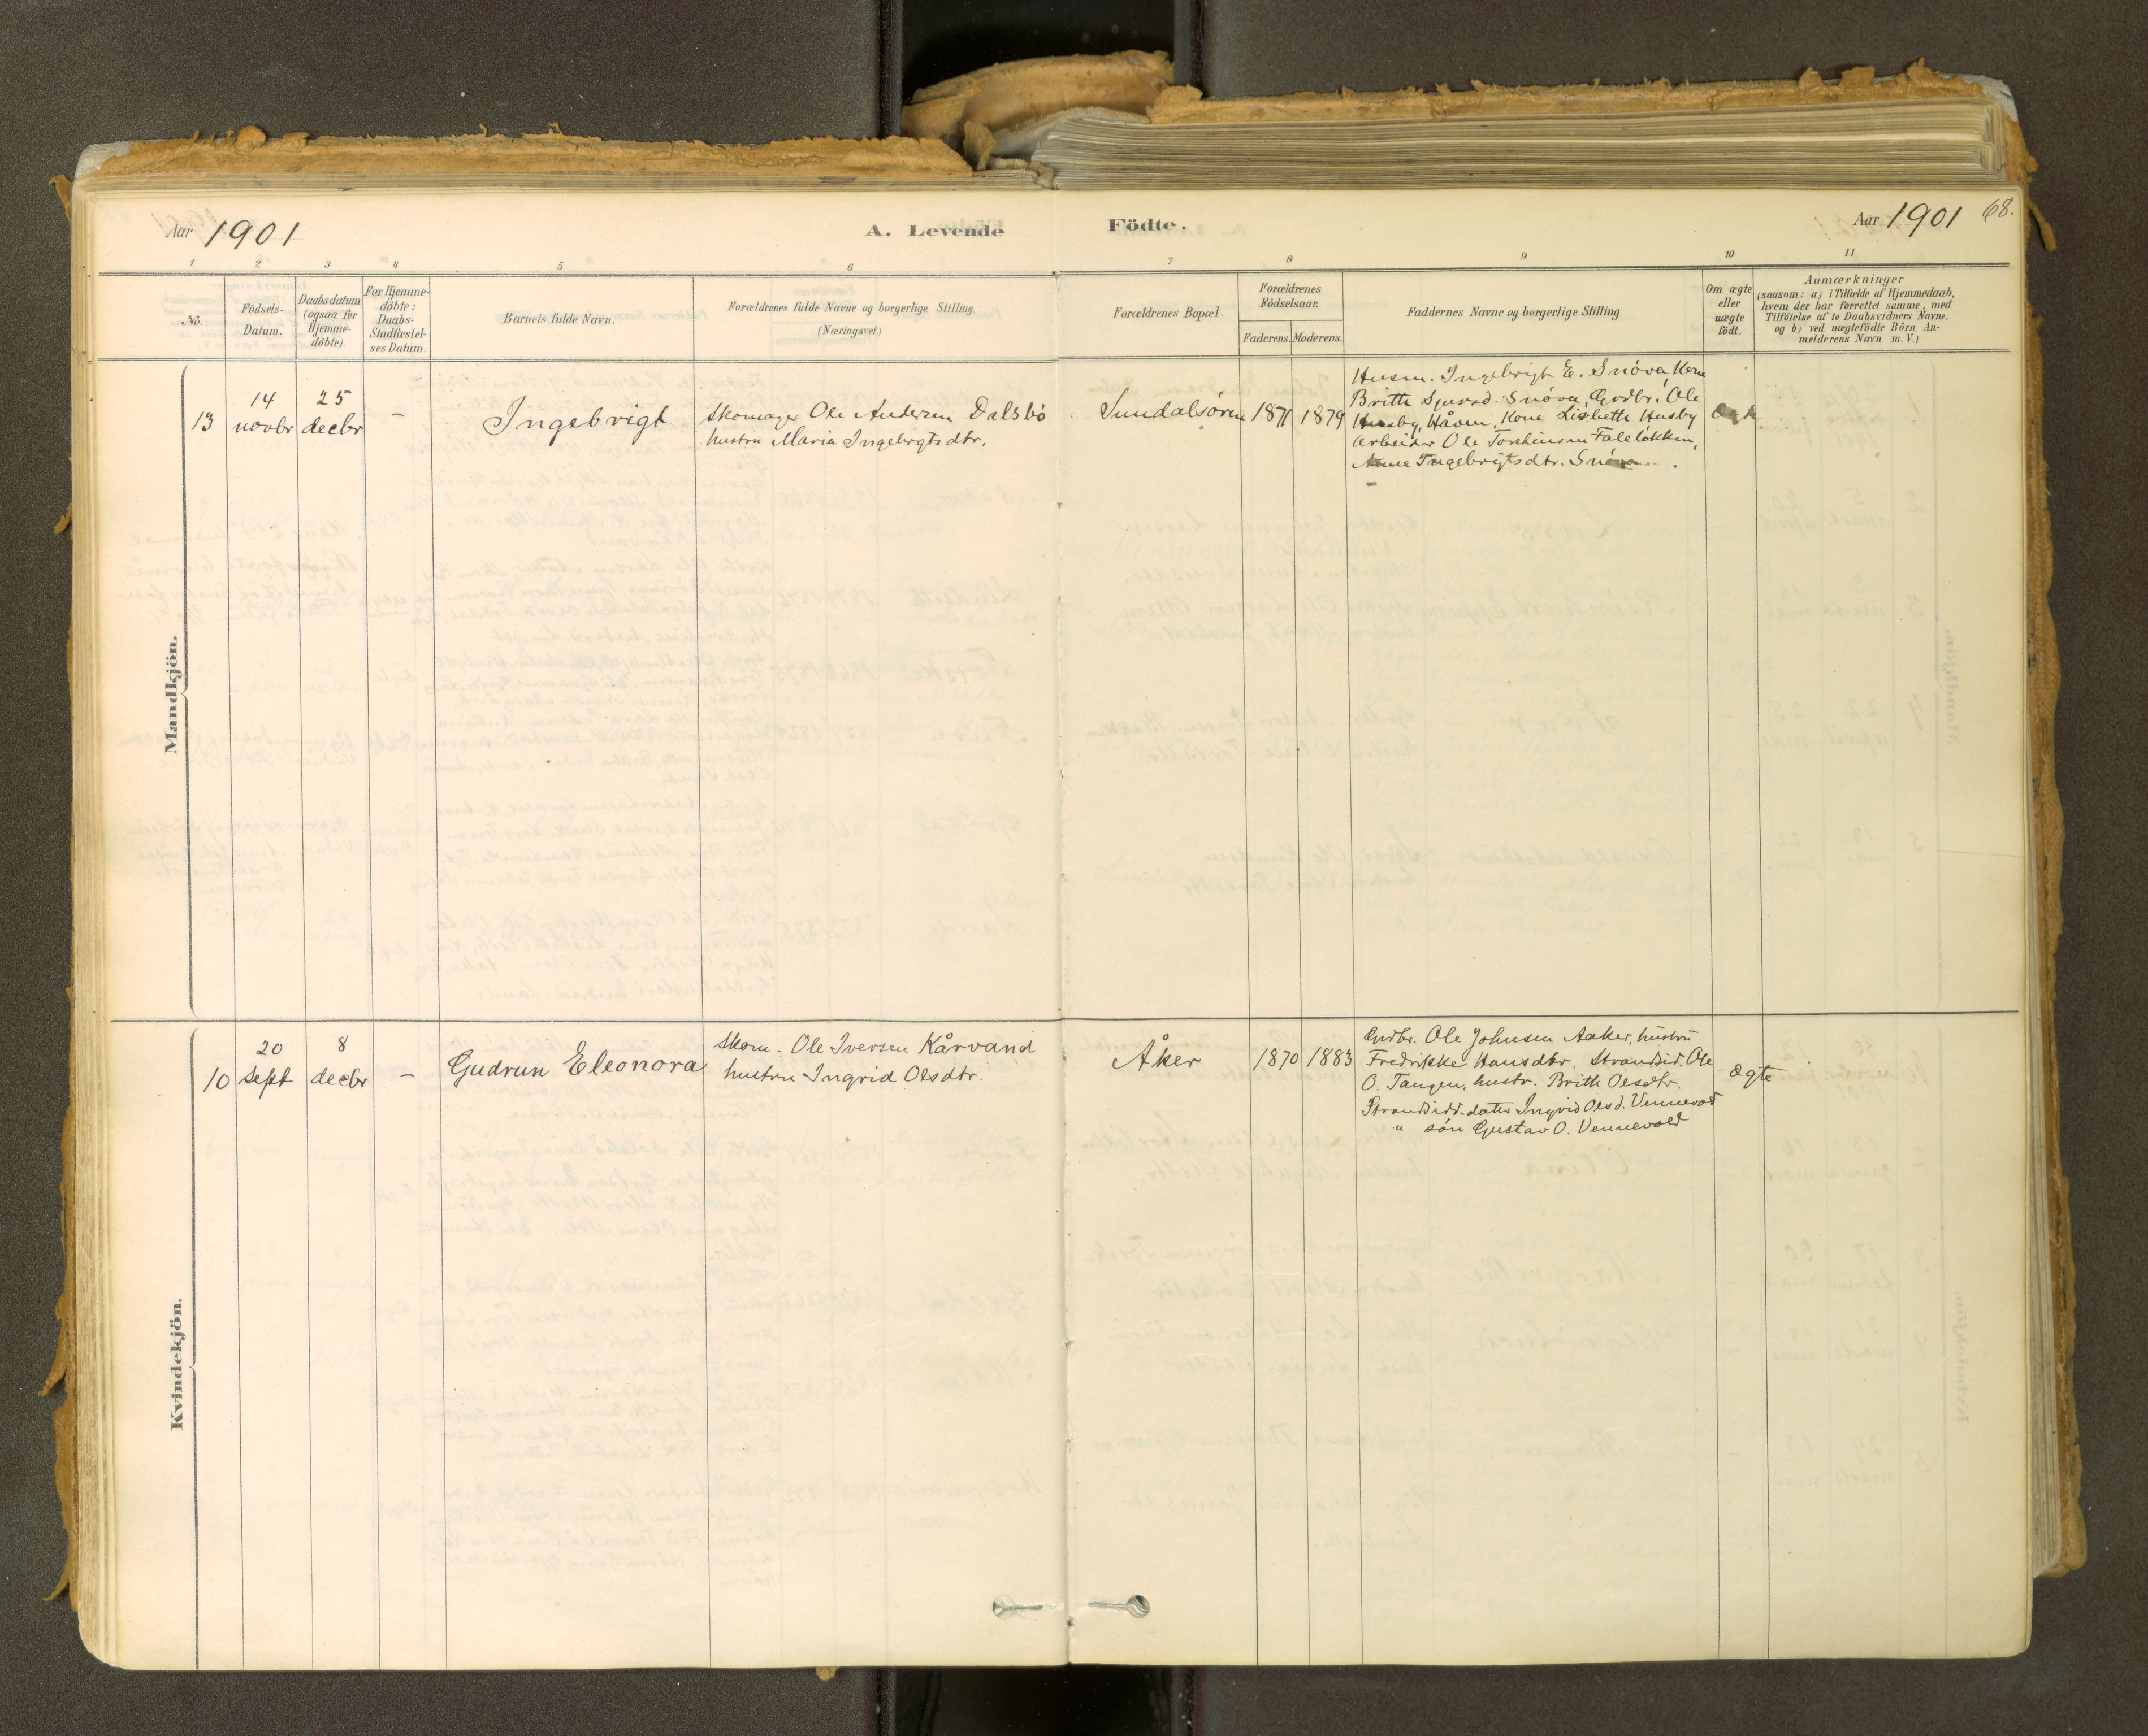 Aar 1901
A. Levende
Födte.
Aar 1901
68.
1 2 3 4 5 6 7 8 9 10 11
No.
Födsels-
Datum.
Daabsdatum
(ogsaa for
Hjemme-
döbte).
For Hjemme-
döbte:
Daabs-
Stadfæstel-
ses Datum.
Barnets fulde Navn.
Forældrenes fulde Navne og borgerlige Stilling
(Næringsvei.)
Forældrenes Bopæl.
Forældrenes
Födselsaar.
Faderens. Moderens.
Faddernes Navne og borgerlige Stilling
Om ægte
eller
uægte
födt.
Anmærkninger
(saasom: a) i Tilfælde af Hjemmedaab,
hvem der har forrettet samme, med
Tilföielse af to Daabsvidners Navne.
og b) ved uægtefödte Börn An-
melderens Navn m. V.)
Mandkjön.
13
14
novbr
25
decbr
-
Ingebrigt
Skomager Ole Andersen Dalsbö
hustru Maria Ingebrigtsdtr.
Sundalsøren
1871
1879
Husm. Ingebrigt E. Snöva, Kone
Brith Sjursd. Snöva, Grdbr. Ole
Husby, Håven, Kone Lisbeth Husby
Arbeider Ole Faleløkken,
Anne Ingebrigtsdtr. Snöva.
ægte
Kvindekjön.
10
20
sept
8
decbr
-
Gudrun Eleonora
Skom. Ole Iversen Kårvand
hustru Ingrid Olsdtr.
Åker
1870
1883
Grdbr. Ole Johnsen Aaker, hustru
Fredrikke Hansdtr. Strandsid. Ole
O. Tangen, hustr. Brith Olesdtr.
Strandsidd. datter Ingrid Olsd. Vennevold
" sön Gustav O. Vennevold
ægte